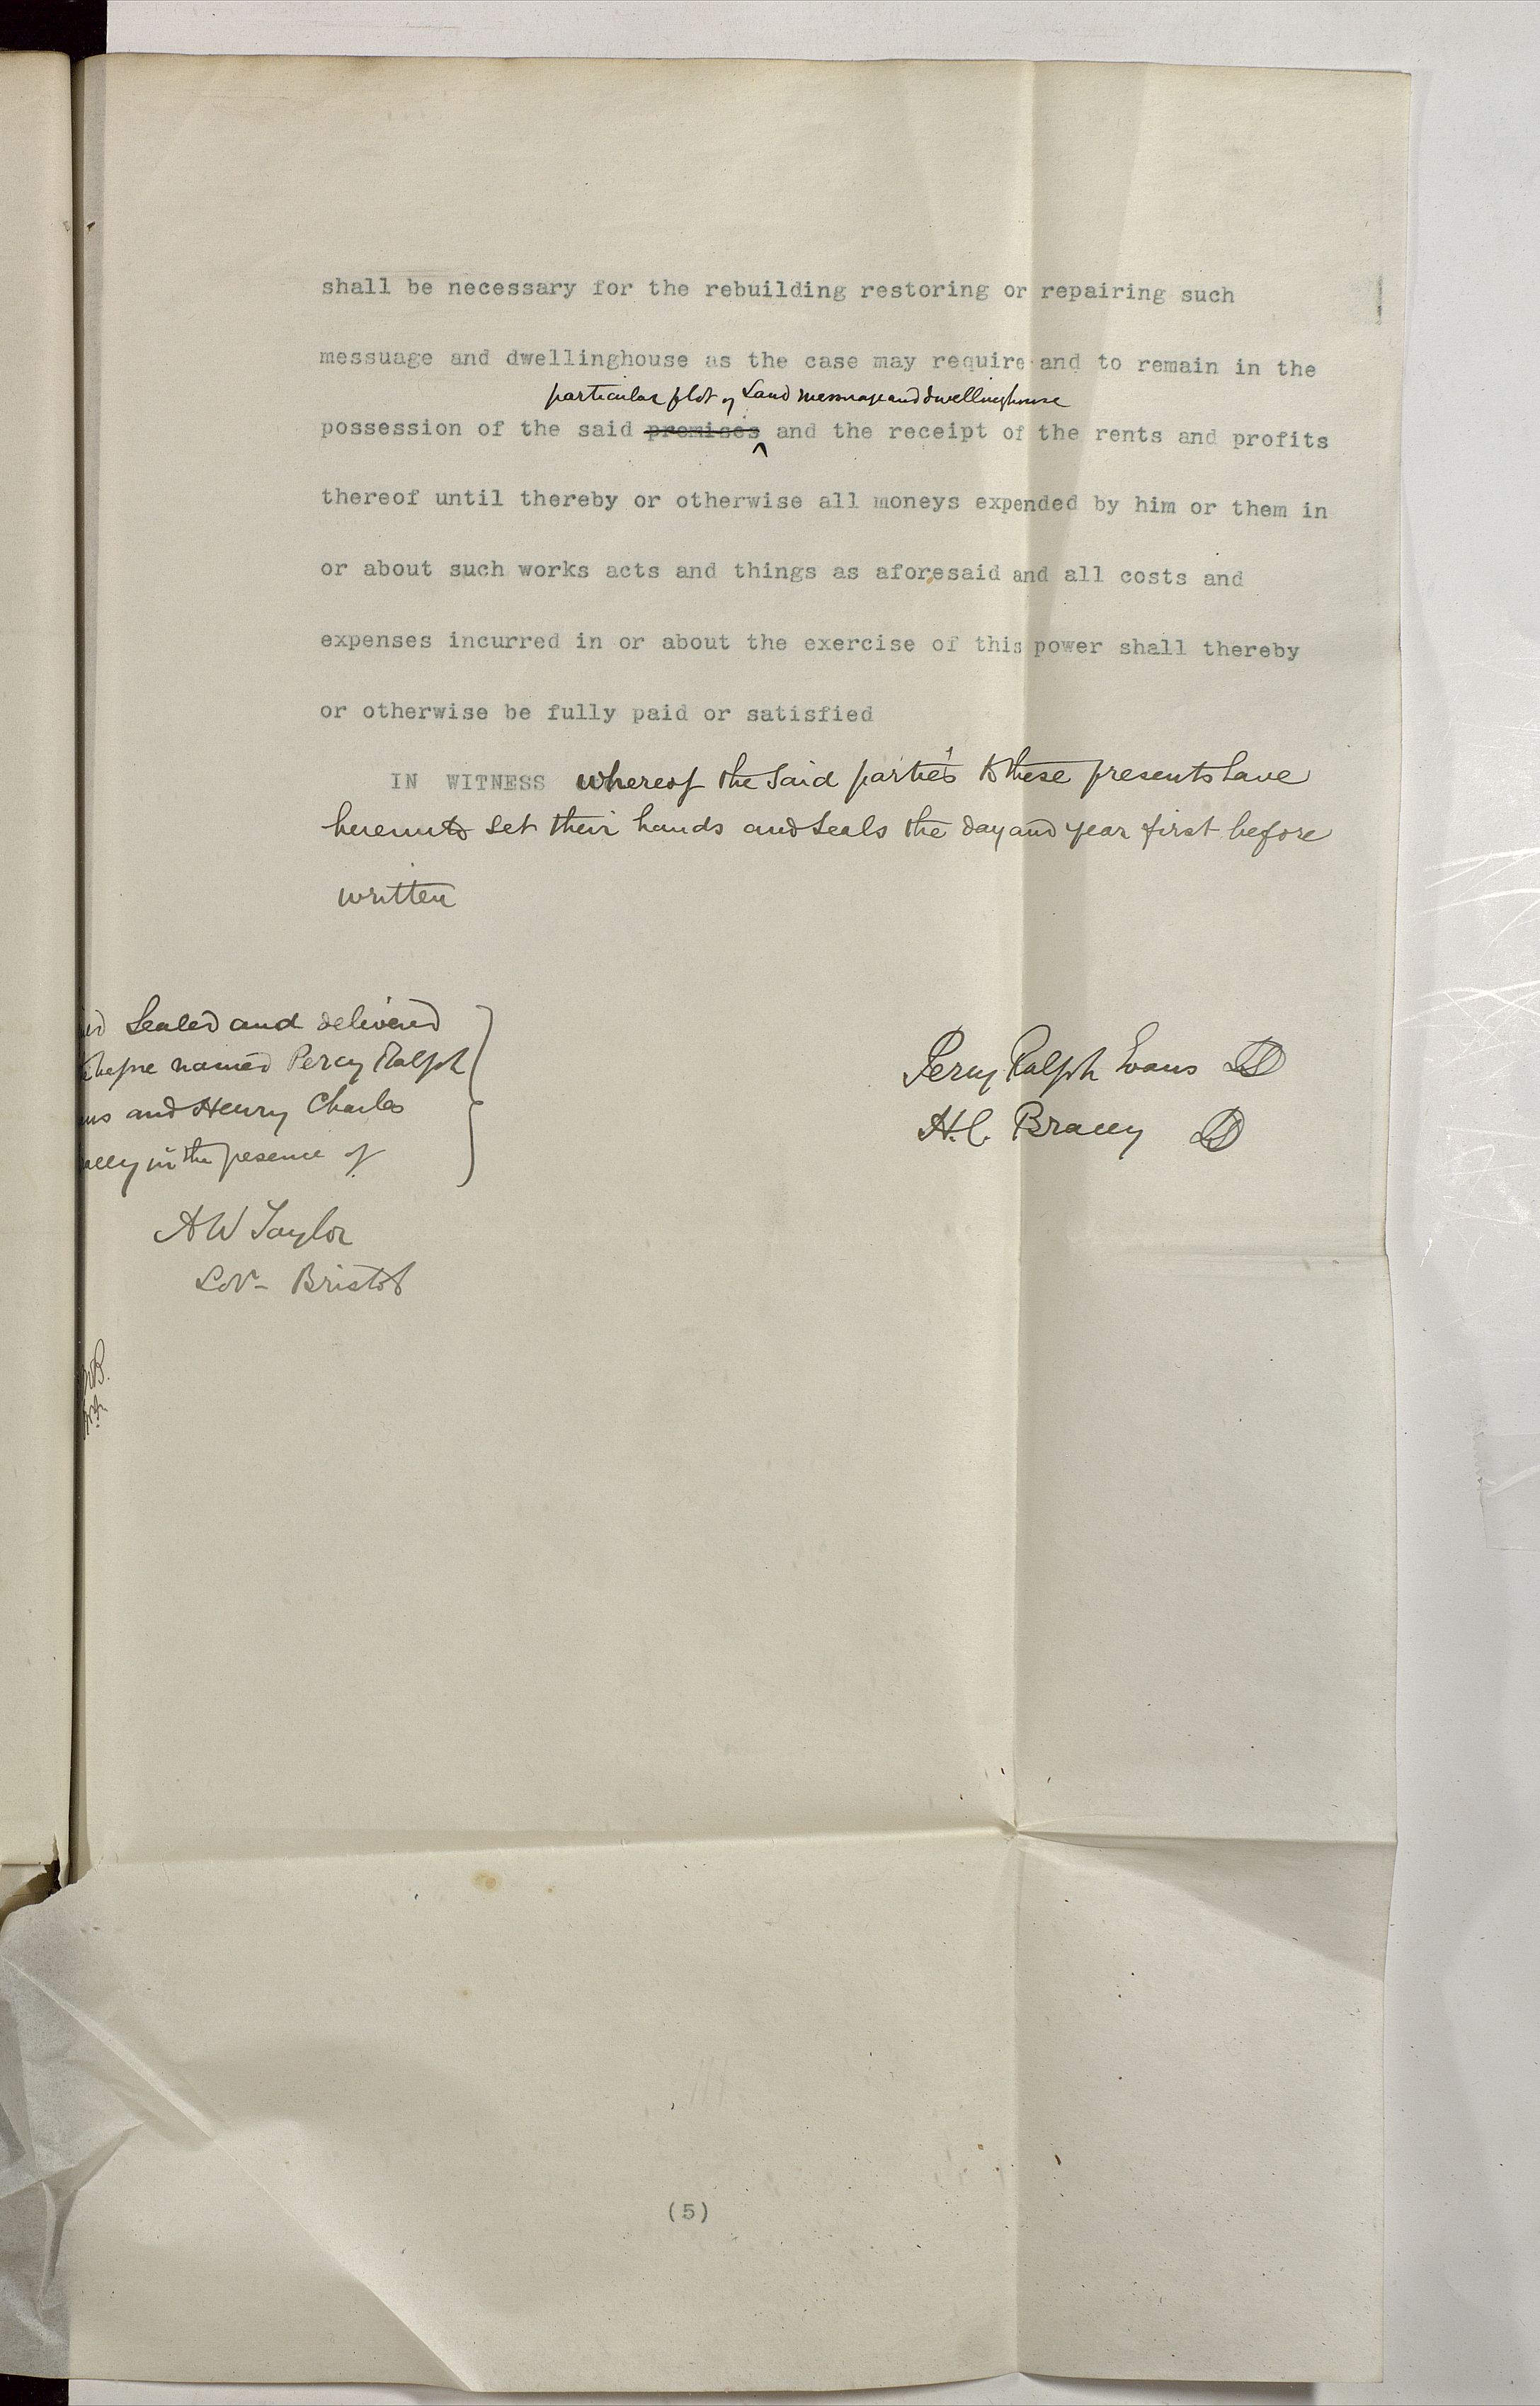 shall be necessary for the rebuilding restoring or repairing such
messuage and dwellinghouse as the case may require and to remain in the
particular plot of Land messuage and dwellinghouse
possession of the said premises ^ and the receipt of the rents and profits
thereof until thereby or otherwise all moneys expended by him or them in
or about such works acts and things as aforesaid and all costs and
expenses incurred in or about the exercise of this power shall thereby
or otherwise be fully paid or satisfied
IN WITNESS whereof the said parties to these presents have
hereunto set their hands and seals the day and year first before
written
Sealed and delivered
named Percy Ralph
and Henry Charles
in the presence of
A W Taylor
Solr- Bristol
Percy Ralph Evans
H.C. Bracey
(5)